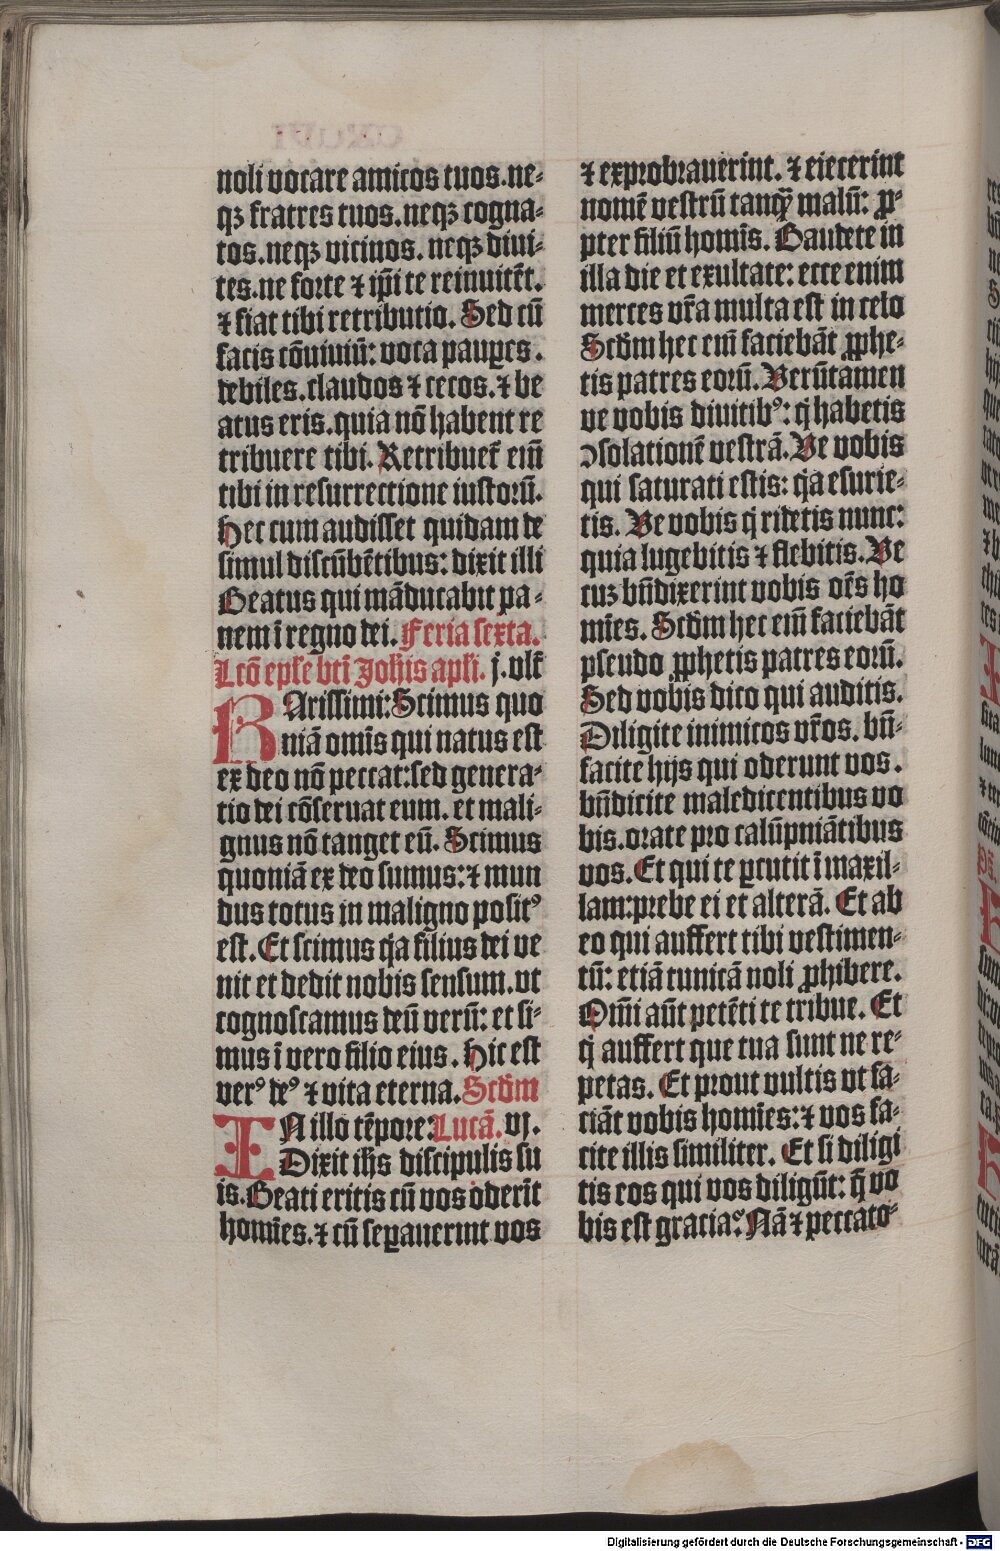 noli vocare amicos tuos.ne-
qꝫ fratres tuos.neqꝫ cogna-
tos.neqꝫ vicinos. neqꝫ divi-
tes.ne forte ⁊ ip̄i te reinuitēt.
⁊ fiat tibi retributio. Sed cū
facis cōuiuiū: voca pauꝑes.
debiles.claudos ⁊ cecos.⁊ be
atus eris.quia nō habent re
tribuere tibi. Retribuet᷑ eniī
tibi in resurrectione iustoꝛū.
Hec cum audisset quidam de
simul discūbētibus: dixit illi
Beatus qui māducabit pa-
nem ī regno dei. Feria sexta.
Lcō epl̄e bt̄i Joh̄is apl̄i. j. vlt᷑
KArissimi: Scimus quo
niā omīs qui natus est
ex deo nō peccat:sed genera-
tio dei cōseruat eum. et mali-
gnus nō tanget eū. Scimus
quoniā ex deo sumus:⁊ mun
dus totus in maligno positꝰ
est. Et scimus qͥa filius dei ve
nit et dedit nobis sensum.vt
cognoscamus deū verū: et si-
mus ī vero filio eius. Hic est
verꝰ deꝰ ⁊ vita eterna. Scd̄m
IN illo tēpore: Lucā. vj.
Dixit ih̄s discipulis su
is. Beati eritis cū vos oderīt
homīes.⁊ cū seꝑauerint vos
⁊ exprobrauerint. ⁊ eiecerint
nomē vestrū tanqꝫ malū: ꝓ-
pter filiū homīs. Gaudete in
illa die et exultate: ecce enim
merces vr̄a multa est in celo
Scd̄m hec eni᷑ faciebāt ꝓphe-
tis patres eoꝛū. Verūtamen
ve vobis diuitibꝰ: qͥ habetis
ꝯsolationē vestrā. Ve vobis
qui saturati estis: qͥa esurie-
tis. Ve vobis qͥ ridetis nunc:
quia lugebitis ⁊ flebitis. Ve
cuz bn̄dixerint vobis oēs ho
mīes. Scd̄m hec eni᷑ faciebāt
pseudo ꝓphetis patres eoꝛū.
Sed vobis dico qui auditis.
Diligite inimicos vr̄os. bn̄-
facite hijs qui oderunt vos.
bn̄dicite maledicentibus vo
bis.orate pro calūpniātibus
vos. Et qui te ꝑcutit ī maxil-
lam:prebe ei et alterā. Et ab
eo qui auffert tibi vestimen-
tū: etiā tunicā noli ꝓhibere.
Omī aūt petēti te tribue. Et
qͥ auffert que tua sunt ne re-
petas. Et prout vultis vt fa-
ciāt vobis homīes:⁊ vos fa-
cite illis similiter. Et si diligi
tis eos qui vos diligūt: q̄ vo
bis est gracia? Nā ⁊ peccato-
Digitalisierung gefördert durch die Deutsche Forschungsgemeinschaft - DFG